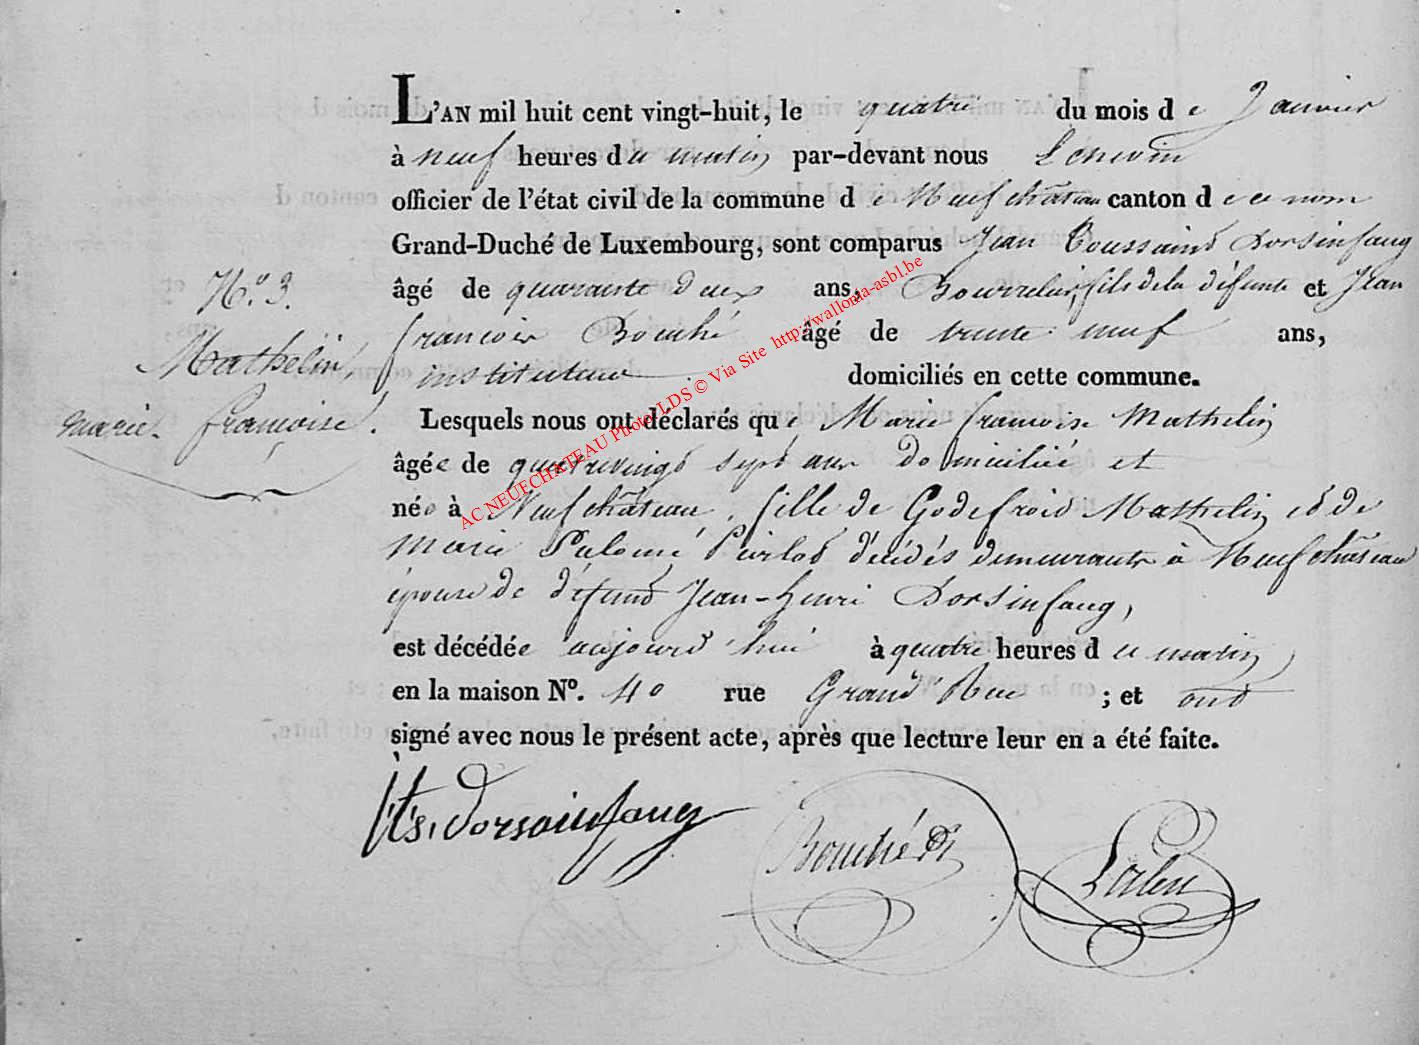 L'AN mil huit cent vingt-huit, le quatre du mois de Janvier
à neuf heures du matin par-devant nous
officier de l'état civil de la commune de Neufchâteau canton de ce nom
Grand-Duché de Luxembourg, sont comparus Jean Toussaint Dorsinfang
âgé de quarante deux ans, Bourrelier, fils de la défunte et Jean
françois Bouché âgé de trente neuf ans,
instituteur domiciliés en cette commune.
Lesquels nous ont déclarés que Marie françoise Mathelin
âgée de quatrevingt sept ans domiciliée et
née à Neufchâteau, fille de Godefroid Mathelin et de
Marie Salomé décédés demeurants à Neufchâteau
épouse de défunt Jean-henri Dorsinfang,
est décédée aujourd'hui à quatre heures du matin
en la maison N°. 40 rue Grand'Rue ; et ont
signé avec nous le présent acte, après que lecture leur en a été faite.
N.° 3.
Mathelin,
marie-françoise.
Dorsainfang
Bouché
AC NEUFCHATEAU Photo LDS © Via Site http://wallonia-asbl.be